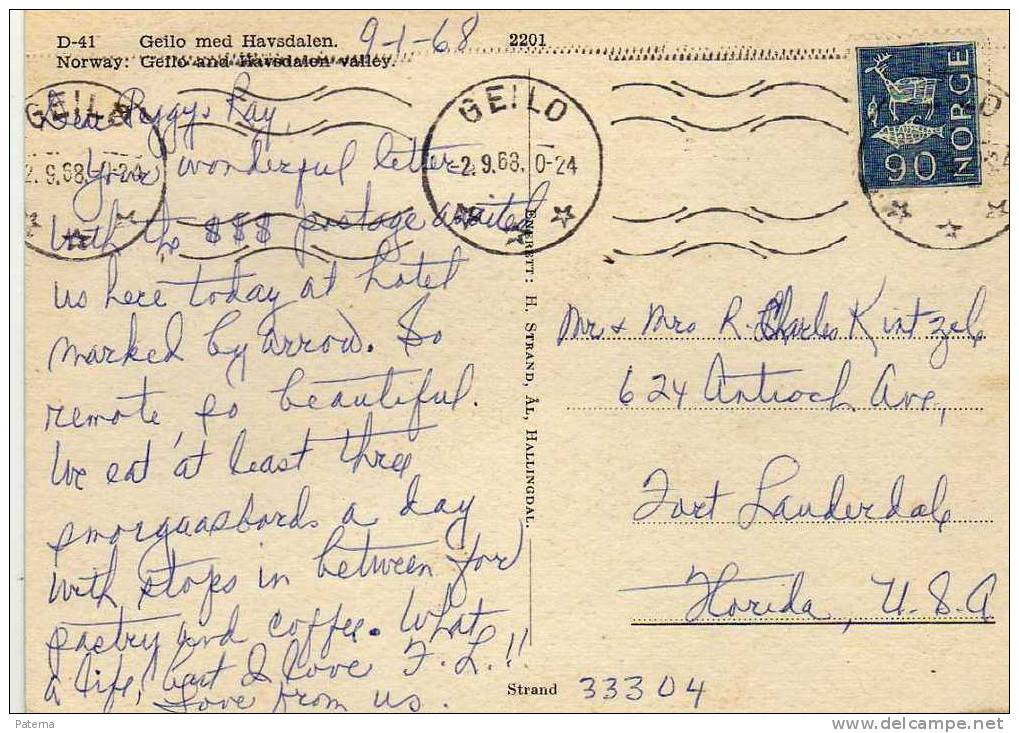 D-41 Geilo med Havsdalen. 9-1-68 2201
Norway: Geilo and Havsdalen valley.
GEILO
2.9.68. 0-24
GEILO
-2.9.68. 0-24
NORGE
90
Dear Peggy & Ray,
Your wonderful letter
with the $$$ postage awaited
us here today at hotel
marked by arrow. So
remote, so beautiful.
We eat at least three
smorguasbords a day
with stops in between for
pastry and coffee. What
a life, but I love F. L.!!
Love from us.
ENERETT: H. STRAND, ÅL, HALLINGDAL.
Mr & Mrs R. Charles Kintzel
624 Antioch Ave,
Fort Lauderdale
Florida, U.S.A
Strand 33304
Paterna
delcampe.net